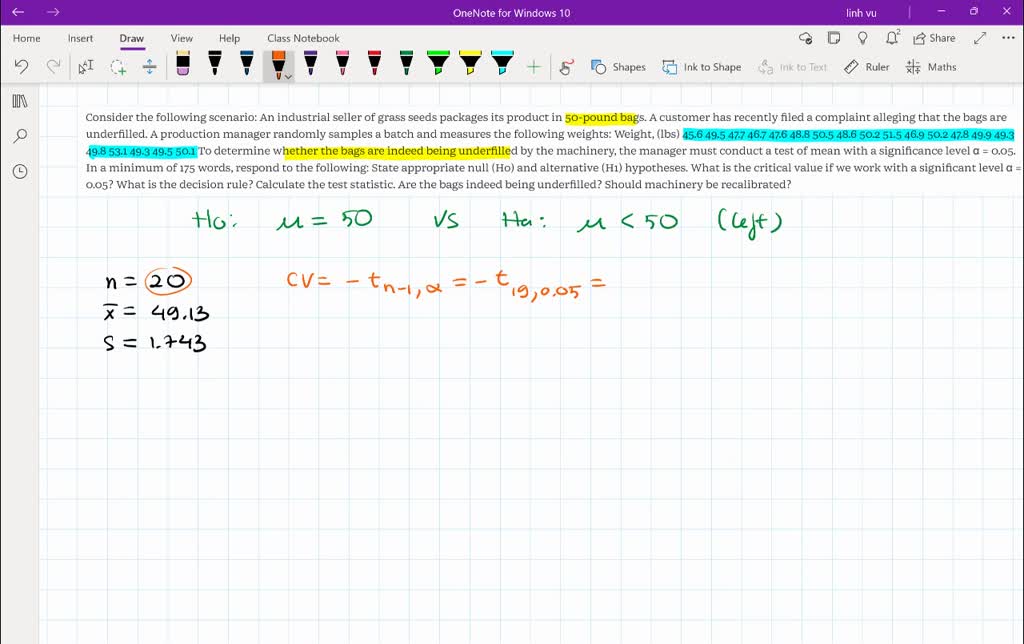 OneNote for Windows 10
linh vu
Home Insert Draw View Help Class Notebook
Share
Shapes Ink to Shape Ink to Text Ruler Maths
Consider the following scenario: An industrial seller of grass seeds packages its product in 50-pound bags. A customer has recently filed a complaint alleging that the bags are
underfilled. A production manager randomly samples a batch and measures the following weights: Weight, (lbs) 45.6 49.5 47.7 46.7 47.6 48.8 50.5 48.6 50.2 51.5 46.9 50.2 47.8 49.9 49.3
49.8 53.1 49.3 49.5 50.1 To determine whether the bags are indeed being underfilled by the machinery, the manager must conduct a test of mean with a significance level α = 0.05.
In a minimum of 175 words, respond to the following: State appropriate null (Ho) and alternative (H1) hypotheses. What is the critical value if we work with a significant level α =
0.05? What is the decision rule? Calculate the test statistic. Are the bags indeed being underfilled? Should machinery be recalibrated?
Ho: μ = 50 vs Ha: μ < 50 (left)
n = 20 CV = - t n-1, α = - t 19, 0.05 =
x̄ = 49.13
S = 1.743